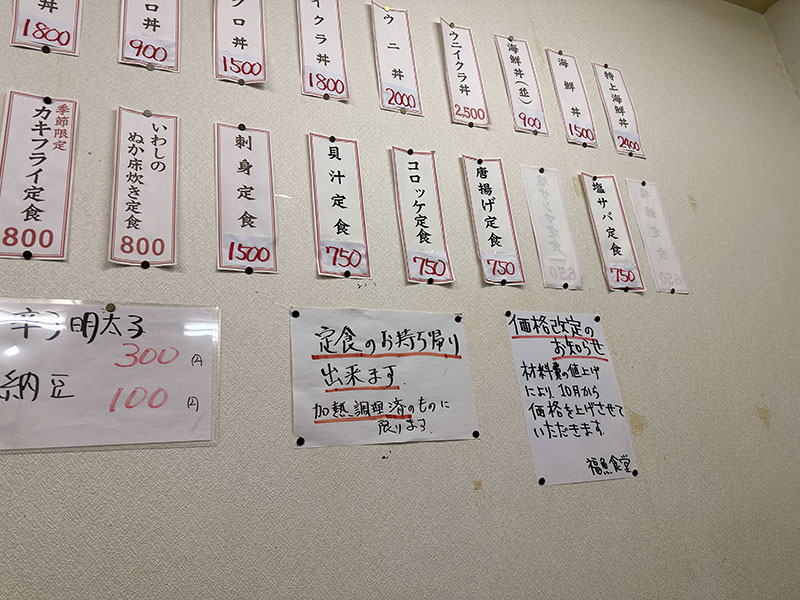 丼
1800
ロ丼
900
クロ丼
1500
イクラ丼
1800
ウニ丼
2000
ウニイクラ丼
2,500
海鮮丼(並)
900
海鮮丼
1500
特上海鮮丼
2400
季節限定
カキフライ定食
800
いわしの
ぬか床炊き定食
800
刺身定食
1500
貝汁定食
750
コロッケ定食
750
唐揚げ定食
750
650
塩サバ定食
750
650
辛子明太子
300円
納豆
100円
定食のお持ち帰り
出来ます
加熱調理済のものに
限ります
価格改定の
お知らせ
材料費の値上げ
により、10月から
価格を上げさせて
いただきます。
福魚食堂